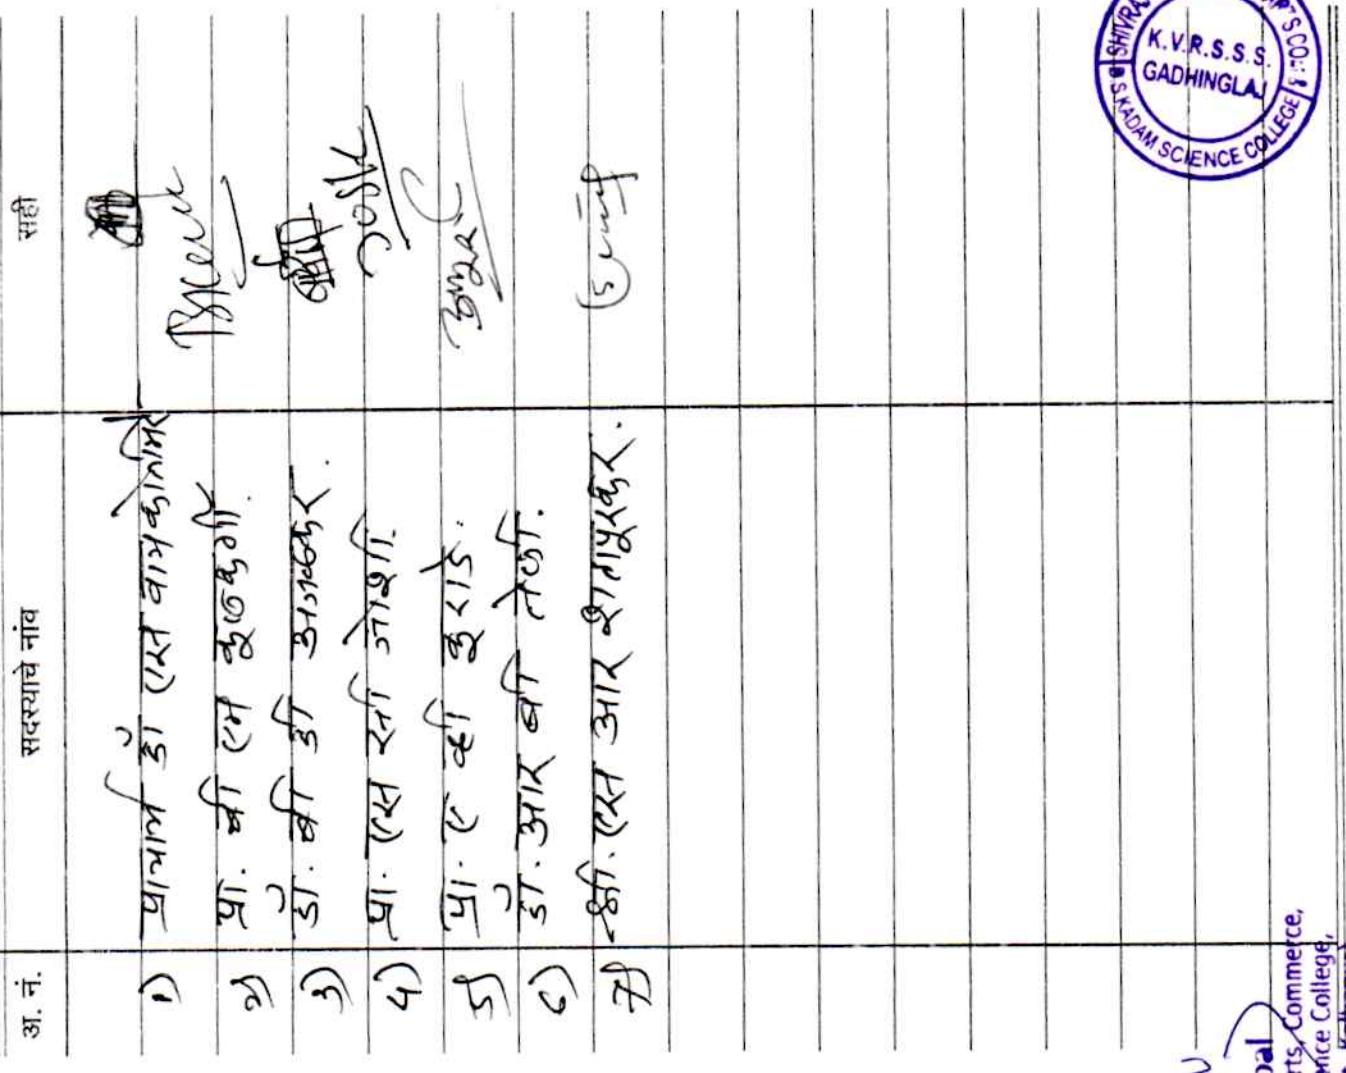 अ. नं. सदस्याचे नांव सही
१) प्राचार्य डॉ एस वाय
२) प्रा. बी एम कुलकर्णी.
३) डॉ. बी डी अजळकर.
४) प्रा. एस सी जोशी.
५) प्रा. ए व्ही कुराडे.
६) डॉ. आर बी तेली.
7) श्री. एस आर शहापूरकर.
SHIVRAJ
ARTS CO
K.V.R.S.S.S.
GADHINGLAJ
S KADAM SCIENCE COLLEGE
pal
rts, Commerce,
nce College,